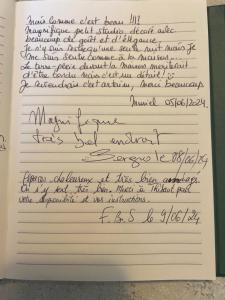 Mais comme c'est beau !!!
Magnifique petit studio, décoré avec
beaucoup de goût et d'élégance.
Je n'y suis restée qu'une seule nuit mais je
me suis sentie comme à la maison...
Le pare-pluie devant la maison mériterait
d'être tondu mais c'est un détail !
Je reviendrai c'est certain, merci beaucoup
Muriel 05/06/2024.
Magnifique
très bel endroit
Sergio le 08/06/24
chaleureux et très bien
On s'y sent très bien. Merci à Thibaut pour
votre disponibilité et vos instructions.
F. B. S le 9/06/24